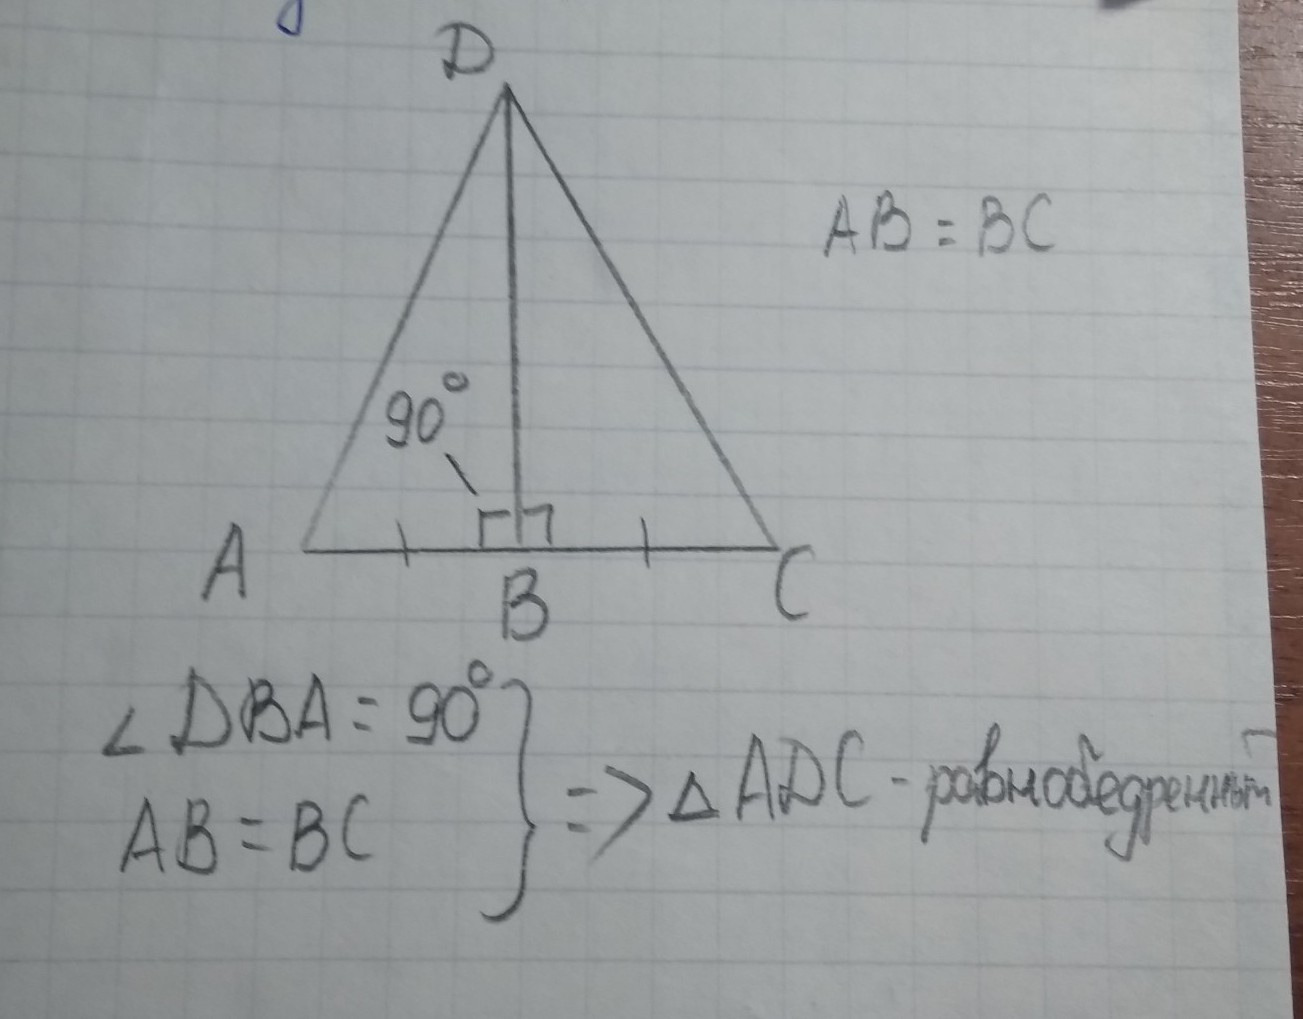 D
AB = BC
90°
A
B
C
∠DBA = 90°
AB = BC
=> △ADC - равнобедренный